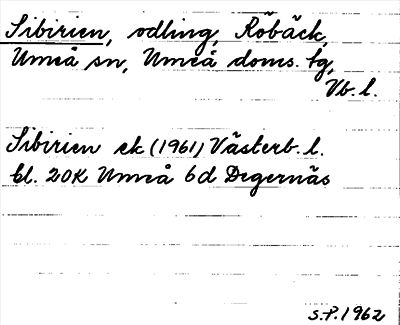 Sibirien, odling, Röbäck,
Umeå sn, Umeå doms. tg,
Vb. l.
Sibirien ek (1961) Västerb. l.
bl. 20K Umeå 6d Degernäs
S.P. 1962